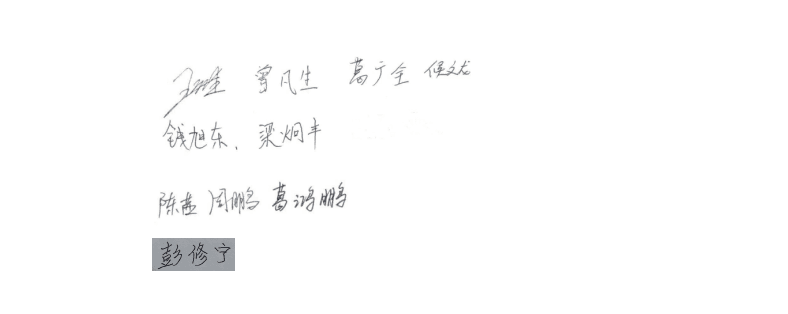 曾凡生 葛广全 侯文龙
钱旭东、梁炯丰
陈茜 周鹏 葛鸿鹏
彭修宁